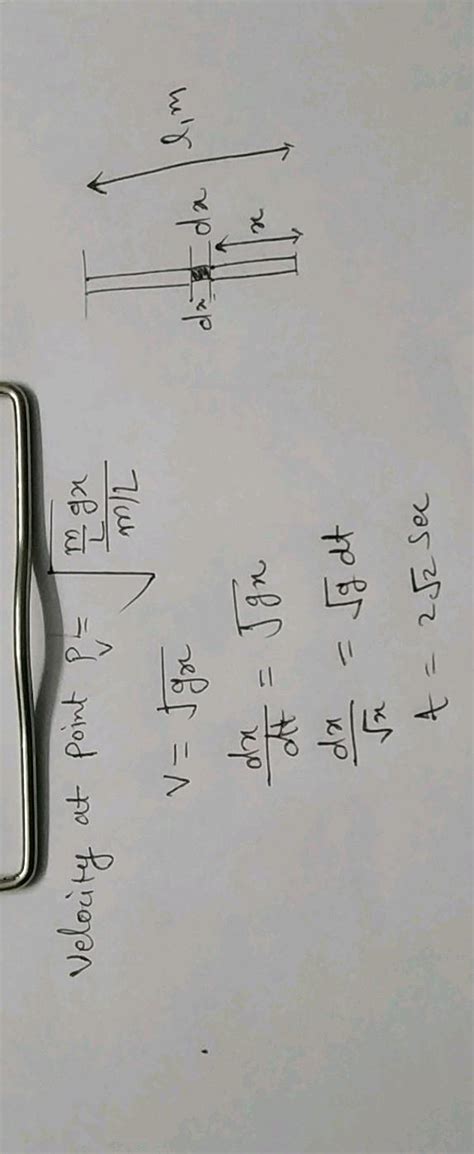 Velocity at point P, v = √((m/L gx)/(m/L))
v = √gx
dx/dt = √gx
dx/√x = √g dt
t = 2√2 sec
dx
dx
x
l, m